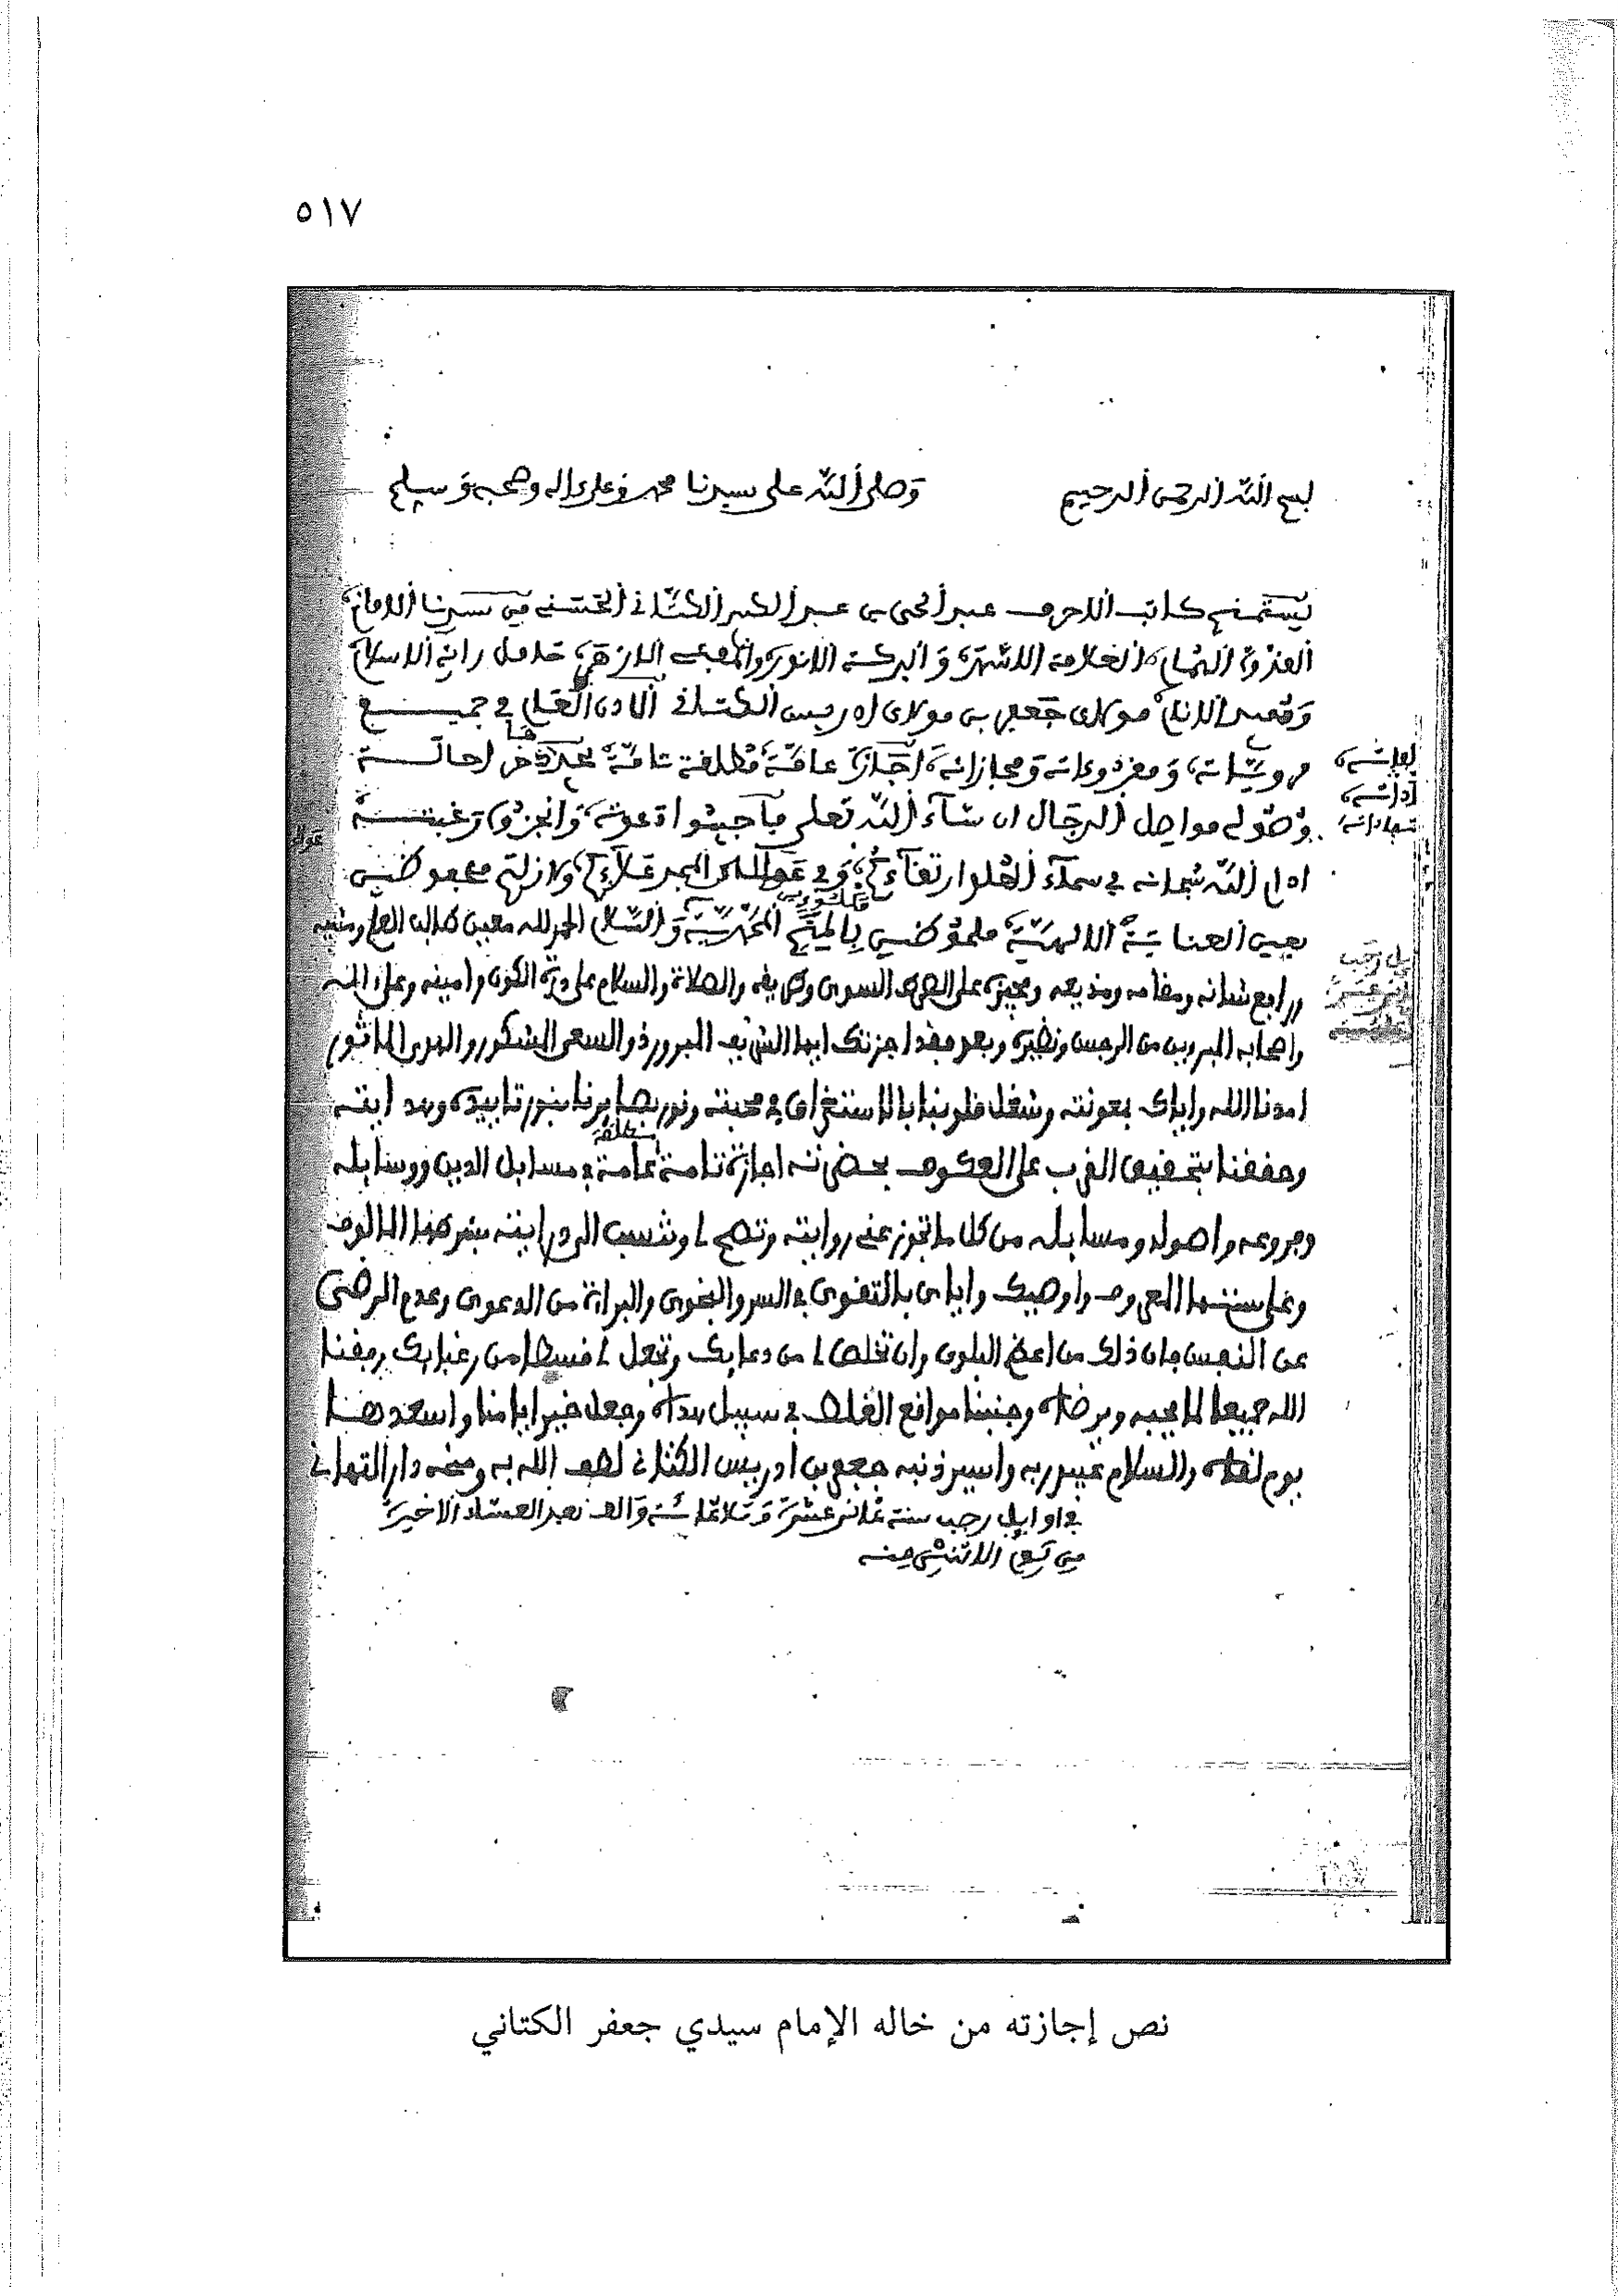 ٥١٧
بسم الله الرحمن الرحيم وصلى الله على سيدنا محمد وعلى اله وصحبه وسلم
يستمنح كاتب الاحرف عبد الحي بن عبد الكبير الكتاني الحسني من سيدنا الامام
القدوة الهمام العلامة الاشهر والبركة الانور الازهر حامل راية الاسلام
مولاي جعفر بن مولاي ادريس الكتاني الاذن العام في جميع
مروياته ومقروءاته ومجازاته اجازة عامة مطلقة تامة
الرجال ان شاء الله تعلى فأجيبوا دعوته وانجزوا رغبته
ادام الله سبحانه في سماء العلو ارتقاءكم وفي ولا زلتم
بعين العناية الالهية ملحوظين المحمدية والسلام الحمد لله معين طالب العلم
ورافع شانه ومقامه والصلاة والسلام على درة الكون وامينه وعلى اله
واصحابه المبرءين من الرجس وبعد فقد اجزتك ايها الشريف المبرور ذو السعي المشكور والهدي الماثور
امدنا الله واياك بمعونته وشغل قلوبنا بالاستغراق في محبته ونور بصايرنا بنور تاييده وهدايته
وحققنا بتحقيق القرب على العكوف بحضرته اجازة تامة عامة مطلقة في مسايل الدين ووسايله
وفروعه واصوله ومسايله من كل ما تجوز عني روايته وتصح لي وتنسب الي درايته بشرطها المالوف
وعلى سننها المعروف واوصيك واياي بالتقوى في السر والنجوى والبراءة من الدعوى وعدم الرضى
عن النفس فان ذلك من اعظم البلوى وان تخلص لي من دعايك وتجعل لي قسطا من رغبايك وفقنا
الله جميعا لما يحبه ويرضاه وجنبنا مواقع الغلط في سبيل هداه وجعل خير ايامنا واسعدها
يوم لقاه والسلام عبيد ربه واسير ذنبه جعفر بن ادريس الكتاني لطف الله به ومنحه دار التهاني
في اوايل رجب سنة ثماني عشرة وثلاثمائة والف بعد العشاء الاخيرة
من يوم الاثنين منه
نص إجازته من خاله الإمام سيدي جعفر الكتاني